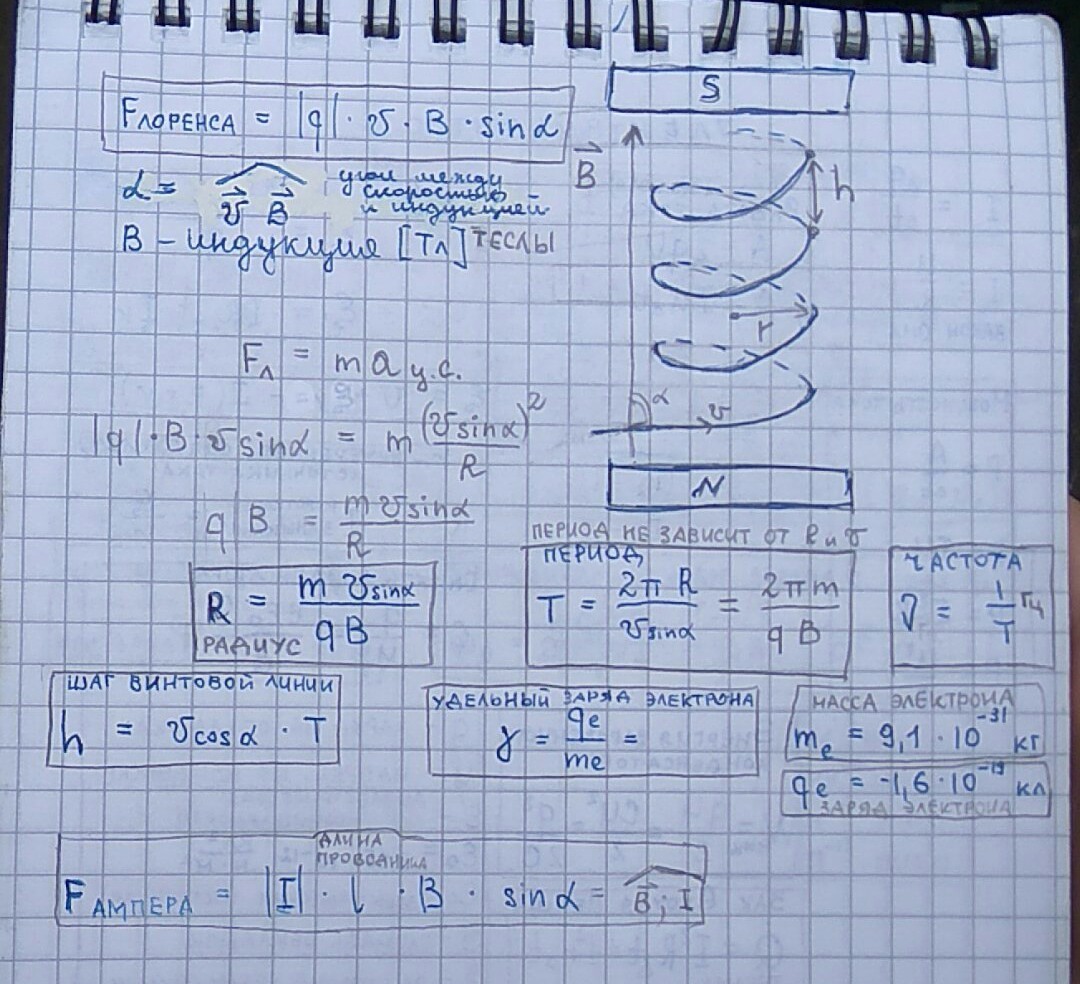 Fлоренса = |q| · v · B · sinα
α = v⃗ B⃗ угол между скоростью и индукцией
B – индукция [Тл] ТЕСЛЫ
Fл = m a у.с.
|q| · B · v sinα = m (v sinα)² / R
q | B = m v sinα / R
R = m v sinα / q B
РАДИУС
S
B⃗
h
r
α
v
N
ПЕРИОД НЕ ЗАВИСИТ ОТ R и v
ПЕРИОД
T = 2π R / v sinα = 2π m / q B
ЧАСТОТА
ν = 1 / T Гц
ШАГ ВИНТОВОЙ ЛИНИИ
h = v cosα · T
УДЕЛЬНЫЙ ЗАРЯД ЭЛЕКТРОНА
γ = qe / me =
МАССА ЭЛЕКТРОНА
me = 9,1 · 10⁻³¹ кг
qe = -1,6 · 10⁻¹⁹ кл
ЗАРЯД ЭЛЕКТРОНА
ДЛИНА
ПРОВОДНИКА
FАМПЕРА = |I| · l · B · sinα = B⃗; I